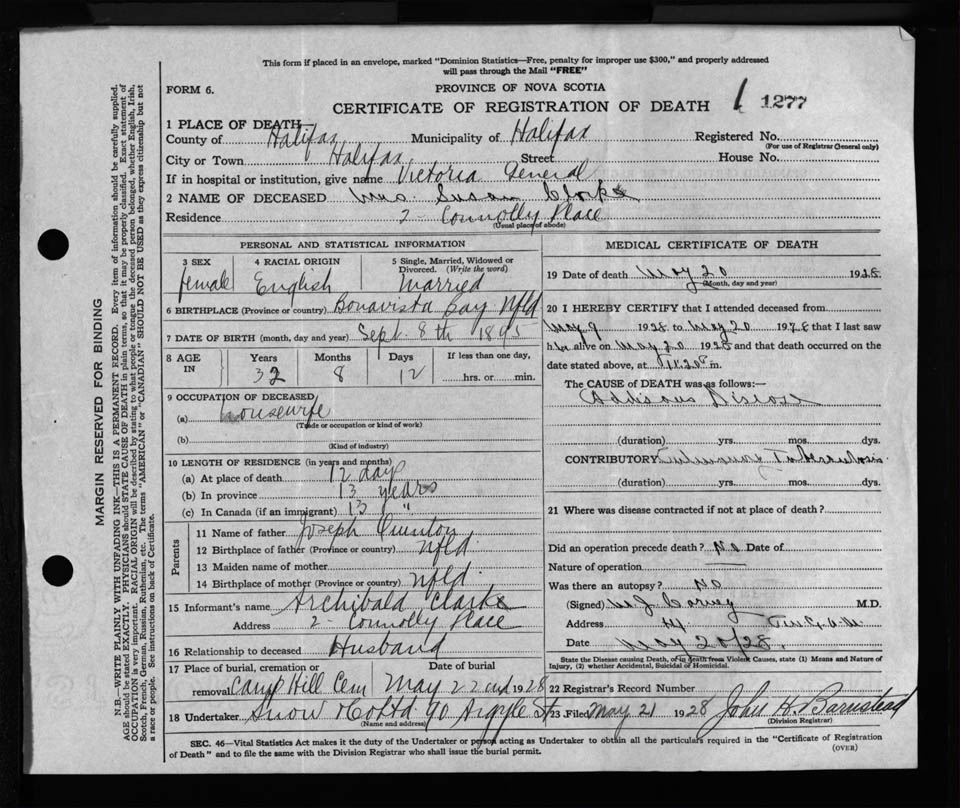 This form if placed in an envelope, marked "Dominion Statistics—Free, penalty for improper use $300," and properly addressed
will pass through the Mail "FREE"
FORM 6.
PROVINCE OF NOVA SCOTIA
CERTIFICATE OF REGISTRATION OF DEATH 1 1277
1 PLACE OF DEATH—
County of Halifax Municipality of Halifax Registered No.
(For use of Registrar General only)
City or Town Halifax Street House No.
If in hospital or institution, give name Victoria General
2 NAME OF DECEASED Mrs. Susan Clarke
Residence 2 - Connolly Place
(Usual place of abode)
PERSONAL AND STATISTICAL INFORMATION
3 SEX 4 RACIAL ORIGIN 5 Single, Married, Widowed or
Divorced. (Write the word)
female English Married
6 BIRTHPLACE (Province or country) Bonavista Bay Nfld
7 DATE OF BIRTH (month, day and year) Sept. 8th 1895
8 AGE IN Years Months Days If less than one day,
32 8 12 hrs. or min.
9 OCCUPATION OF DECEASED
(a) housewife
(Trade or occupation or kind of work)
(b)
(Kind of industry)
10 LENGTH OF RESIDENCE (in years and months)
(a) At place of death 12 days
(b) In province 13 years
(c) In Canada (if an immigrant) 13 "
Parents
11 Name of father Joseph Quinton
12 Birthplace of father (Province or country) Nfld.
13 Maiden name of mother
14 Birthplace of mother (Province or country) Nfld.
15 Informant's name Archibald Clarke
Address 2 - Connolly Place
16 Relationship to deceased Husband
17 Place of burial, cremation or Date of burial
removal Camp Hill Cem May 22nd 1928
18 Undertaker Snow & Co Ltd 90 Argyle St
(Name and address)
MEDICAL CERTIFICATE OF DEATH
19 Date of death May 20 1928
(Month, day and year)
20 I HEREBY CERTIFY that I attended deceased from
May 9 1928 to May 20 1928 that I last saw
her alive on May 20 1928 and that death occurred on the
date stated above, at 11.20 P m.
The CAUSE OF DEATH was as follows:—
Addisons Disease
(duration) yrs. mos. dys.
CONTRIBUTORY Pulmonary Tuberculosis
(duration) yrs. mos. dys.
21 Where was disease contracted if not at place of death?
Did an operation precede death? No Date of
Nature of operation
Was there an autopsy? No
(Signed) M.D.
Address
Date May 20/28.
State the Disease causing Death, or in death from Violent Causes, state (1) Means and Nature of
Injury, (2) whether Accidental, Suicidal or Homicidal.
22 Registrar's Record Number
23 Filed May 21 1928 John H. Barnstead
(Division Registrar)
SEC. 46—Vital Statistics Act makes it the duty of the Undertaker or person acting as Undertaker to obtain all the particulars required in the "Certificate of Registration
of Death" and to file the same with the Division Registrar who shall issue the burial permit.
(OVER)
MARGIN RESERVED FOR BINDING
N.B.—WRITE PLAINLY WITH UNFADING INK—THIS IS A PERMANENT RECORD. Every item of information should be carefully supplied.
AGE should be stated EXACTLY. PHYSICIANS should STATE CAUSE OF DEATH in plain terms, so that it may be properly classified. Exact statement of
OCCUPATION is very important. RACIAL ORIGIN will be described by stating to what people or tongue the deceased person belonged, whether English, Irish,
Scotch, French, German, Russian, Ruthenian, etc. The terms "AMERICAN" or "CANADIAN" SHOULD NOT BE USED as they express citizenship but not
a race or people. See instructions on back of Certificate.